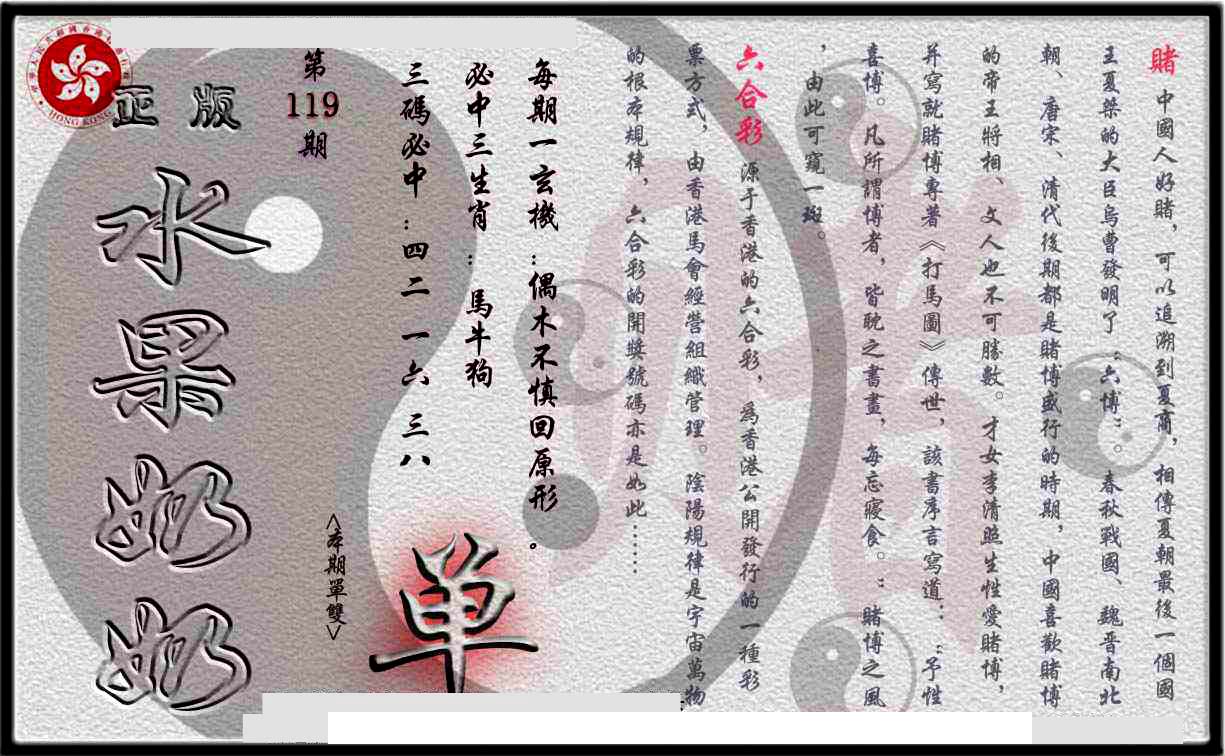 賭 中國人好賭，可以追溯到夏商，相傳夏朝最後一個國
王夏桀的大臣烏曹發明了“六博”。春秋戰國、魏晉南北
朝、唐宋、清代後期都是賭博盛行的時期，中國喜歡賭博
的帝王將相、文人也不可勝數。才女李清照生性愛賭博，
并寫就賭博專著《打馬圖》傳世，該書序言寫道：“予性
喜博。凡所謂博者，皆耽之書畫，每忘寢食。”賭博之風
，由此可窺一斑。
六合彩 源于香港的六合彩，為香港公開發行的一種彩
票方式，由香港馬會經營組織管理。陰陽規律是宇宙萬物
的根本規律，六合彩的開獎號碼亦是如此……
每期一玄機：偶木不慎回原形。
必中三生肖：馬牛狗
三碼必中：四二 一六 三八
<本期單雙>
单
第
119
期
正版
水果奶奶
HONG KONG